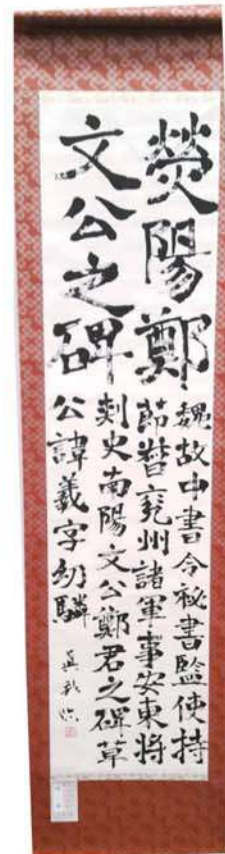 熒陽鄭
文公之碑
魏故中書令祕書監使持
節督兗州諸軍事安東將
刺史南陽文公鄭君之碑草
公諱羲字幼驎